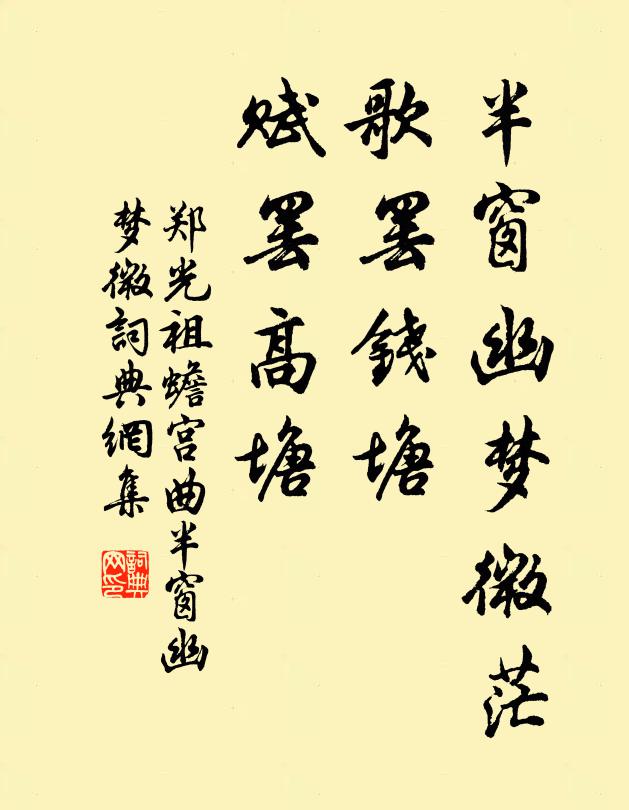 半窗幽梦微茫
歌罢錢塘
赋罢高塘
郑光祖蟾宫曲半窗幽
梦微詞典網集
詞典網印